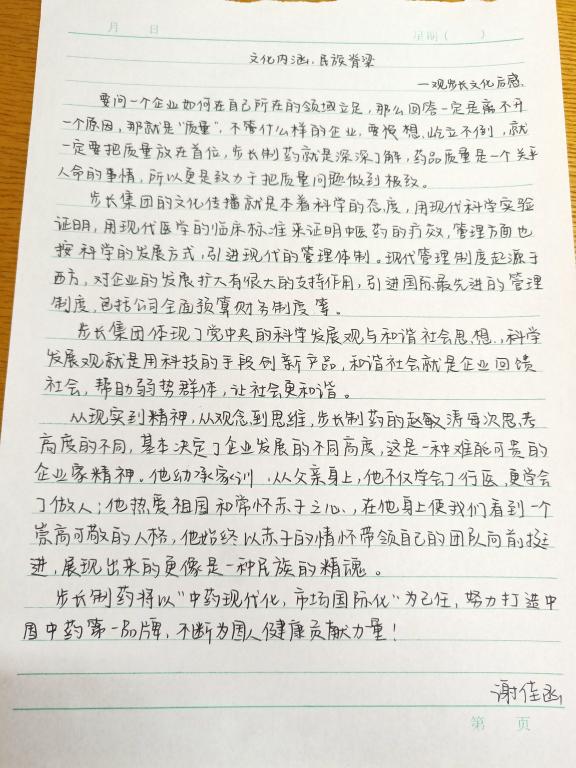 月 日 星期( )
文化内涵,民族脊梁
—观步长文化后感.
要问一个企业如何在自己所在的领域立足,那么回答一定是离不开
一个原因,那就是“质量”,不管什么样的企业,要慢想,屹立不倒,就
一定要把质量放在首位,步长制药就是深深了解,药品质量是一个关乎
人命的事情,所以更是致力于把质量问题做到极致。
步长集团的文化传播就是本着科学的态度,用现代科学实验
证明,用现代医学的临床标准来证明中医药的疗效,管理方面也
按科学的发展方式,引进现代的管理体制。现代管理制度起源于
西方,对企业的发展扩大有很大的支持作用,引进国际最先进的管理
制度,包括公司全面预算财务制度等。
步长集团体现了党中央的科学发展观与和谐社会思想.,科学
发展观就是用科技的手段创新产品,和谐社会就是企业回馈
社会,帮助弱势群体,让社会更和谐。
从现实到精神,从观念到思维,步长制药的赵敏涛每次思考
高度的不同,基本决定了企业发展的不同高度,这是一种难能可贵的
企业家精神。他幼承家训,从父亲身上,他不仅学会了行医,更学会
了做人;他热爱祖国和常怀赤子之心,在他身上使我们看到一个
崇高可敬的人格,他始终以赤子的情怀带领自己的团队向前挺
进,展现出来的更像是一种民族的精魂。
步长制药将以“中药现代化,市场国际化”为己任,努力打造中
国中药第一品牌,不断为国人健康贡献力量!
谢佳函
第 页